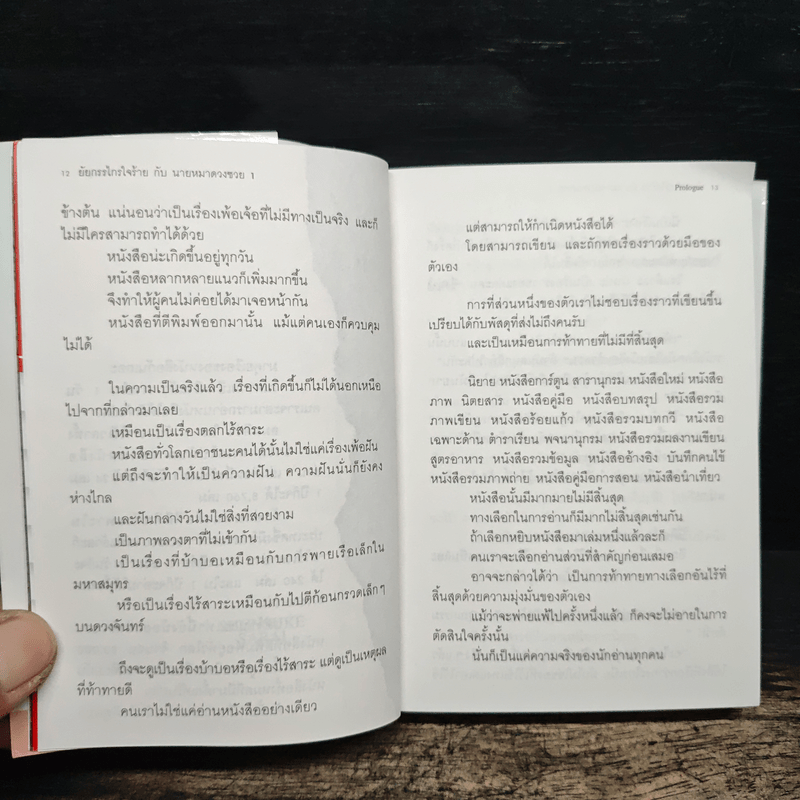 12 ยัยกรรไกรใจร้าย กับ นายหมาดวงซวย 1
ข้างต้น แน่นอนว่าเป็นเรื่องเพ้อเจ้อที่ไม่มีทางเป็นจริง และก็
ไม่มีใครสามารถทำได้ด้วย
หนังสือน่ะเกิดขึ้นอยู่ทุกวัน
หนังสือหลากหลายแนวก็เพิ่มมากขึ้น
จึงทำให้ผู้คนไม่ค่อยได้มาเจอหน้ากัน
หนังสือที่ตีพิมพ์ออกมานั้น แม้แต่คนเองก็ควบคุม
ไม่ได้
ในความเป็นจริงแล้ว เรื่องที่เกิดขึ้นก็ไม่ได้นอกเหนือ
ไปจากที่กล่าวมาเลย
เหมือนเป็นเรื่องตลกไร้สาระ
หนังสือทั่วโลกเอาชนะคนได้นั้นไม่ใช่แค่เรื่องเพ้อฝัน
แต่ถึงจะทำให้เป็นความฝัน ความฝันนั่นก็ยังคง
ห่างไกล
และฝันกลางวันไม่ใช่สิ่งที่สวยงาม
เป็นภาพลวงตาที่ไม่เข้ากัน
เป็นเรื่องที่บ้าบอเหมือนกับการพายเรือเล็กใน
มหาสมุทร
หรือเป็นเรื่องไร้สาระเหมือนกับไปตีก้อนกรวดเล็กๆ
บนดวงจันทร์
ถึงจะดูเป็นเรื่องบ้าบอหรือเรื่องไร้สาระ แต่ดูเป็นเหตุผล
ที่ท้าทายดี
คนเราไม่ใช่แค่อ่านหนังสืออย่างเดียว
Prologue 13
แต่สามารถให้กำเนิดหนังสือได้
โดยสามารถเขียน และถักทอเรื่องราวด้วยมือของ
ตัวเอง
การที่ส่วนหนึ่งของตัวเราไม่ชอบเรื่องราวที่เขียนขึ้น
เปรียบได้กับพัสดุที่ส่งไม่ถึงคนรับ
และเป็นเหมือนการท้าทายที่ไม่มีที่สิ้นสุด
นิยาย หนังสือการ์ตูน สารานุกรม หนังสือใหม่ หนังสือ
ภาพ นิตยสาร หนังสือคู่มือ หนังสือบทสรุป หนังสือรวม
ภาพเขียน หนังสือร้อยแก้ว หนังสือรวมบทกวี หนังสือ
เฉพาะด้าน ตำราเรียน พจนานุกรม หนังสือรวมผลงานเขียน
สูตรอาหาร หนังสือรวมข้อมูล หนังสืออ้างอิง บันทึกคนไข้
หนังสือรวมภาพถ่าย หนังสือคู่มือการสอน หนังสือนำเที่ยว
หนังสือนั้นมีมากมายไม่มีสิ้นสุด
ทางเลือกในการอ่านก็มีมากไม่สิ้นสุดเช่นกัน
ถ้าเลือกหยิบหนังสือมาเล่มหนึ่งแล้วละก็
คนเราจะเลือกอ่านส่วนที่สำคัญก่อนเสมอ
อาจจะกล่าวได้ว่า เป็นการท้าทายทางเลือกอันไร้ที่
สิ้นสุดด้วยความมุ่งมั่นของตัวเอง
แม้ว่าจะพ่ายแพ้ไปครั้งหนึ่งแล้ว ก็คงจะไม่อายในการ
ตัดสินใจครั้งนั้น
นั่นก็เป็นแค่ความจริงของนักอ่านทุกคน